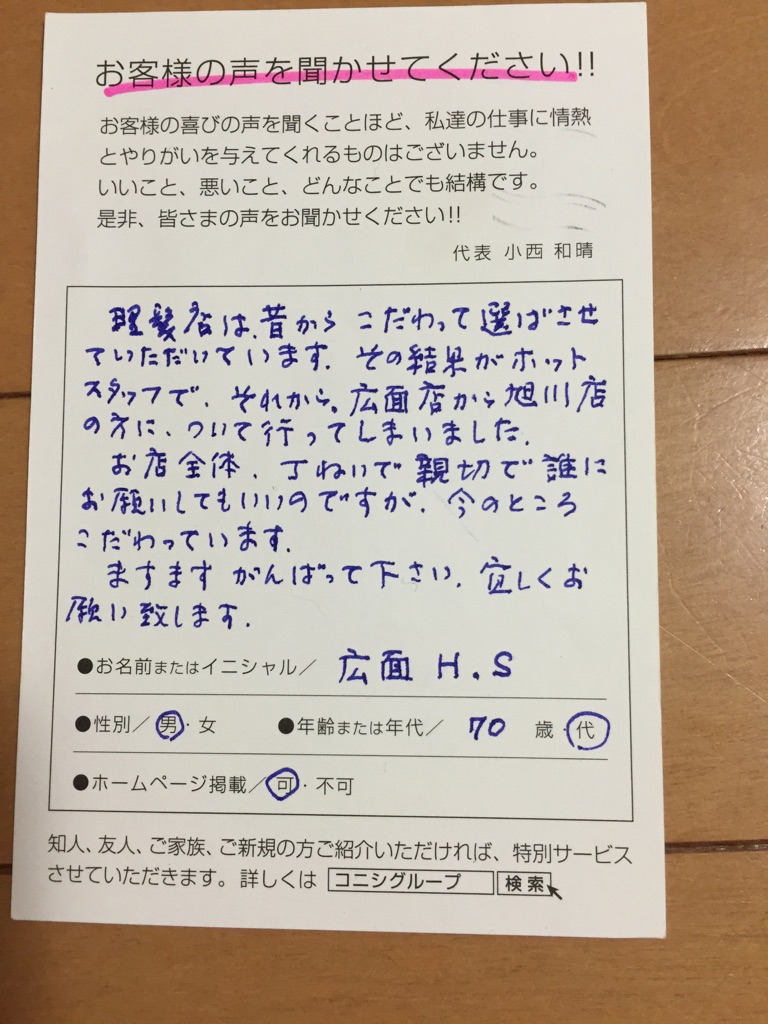 お客様の声を聞かせてください!!
お客様の喜びの声を聞くことほど、私達の仕事に情熱
とやりがいを与えてくれるものはございません。
いいこと、悪いこと、どんなことでも結構です。
是非、皆さまの声をお聞かせください!!
代表 小西 和晴
理髪店は、昔から こだわって選ばさせ
ていただいています。その結果がホット
スタッフで、それから。広面店から旭川店
の方に、ついて行ってしまいました。
お店全体、丁ねいで親切で誰に
お願いしてもいいのですが、今のところ
こだわっています。
ますますがんばって下さい。宜しくお
願い致します。
●お名前またはイニシャル／ 広面 H.S
●性別／男・女 ●年齢または年代／ 70 歳・代
●ホームページ掲載／可・不可
知人、友人、ご家族、ご新規の方ご紹介いただければ、特別サービス
させていただきます。詳しくは コニシグループ 検索